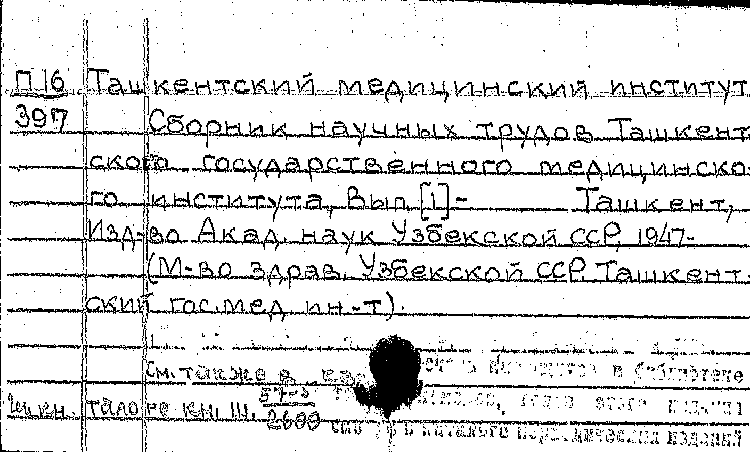 П16 Ташкентский медицинский институт
397 Сборник научных трудов Ташкент-
ского государственного медицинско-
го института, Вып. [1]- Ташкент,
Изд-во Акад. наук Узбекской ССР, 1947-
(М-во здрав. Узбекской ССР. Ташкент-
ский гос. мед. ин-т).
см. также в в библиотеке
талоге кн. Ш. 57-5/2600 этого
см в каталоге периодических изданий